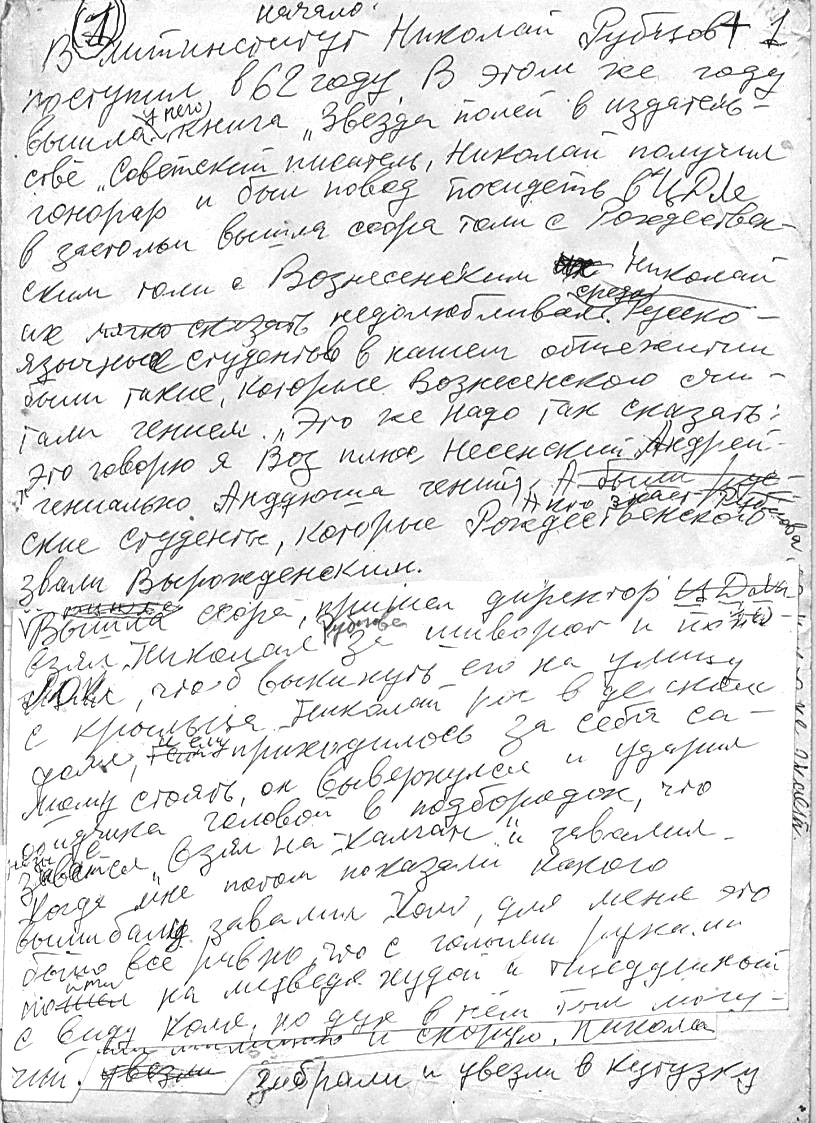 начало.
1
В литинститут Николай Рубцов + 1
поступил в 62 году. В этом же году
вышла у него книга „Звезда полей в издатель-
стве „Советский писатель, Николай получил
гонорар и был повод посидеть в ЦДЛе
в застольи вышла ссора толи с Рождествен-
ским толи с Вознесенским Николай
их мягко сказать недолюбливал. Среди Русско-
язычных студентов в нашем общежитии
были такие, которые Вознесенского счи-
тали гением. „Это же надо так сказать:
Это говорю я Воз плюс Несенский Андрей-
гениально Андрюша гений, А были рус-
ские студенты, которые Рождественского
звали Вырожденским.
А кто знает Рубцова
Вышла ссора, пришёл директор ЦДЛа
взял Николая Рубцова за шиворот и
что б выкинуть его на улицу
с крыльца Николай рос в детском
доме, и ему приходилось за себя са-
мому стоять, он вывернулся и ударил
обидчика головой в подбородок, что
называется „взял на Калган" и завалил-
Когда мне потом показали какого
вышибалу завалил Коля, для меня это
было всё равно, что с голыми руками
идти на медведя худой и тщедушный
с виду Коля, но дух в нём был могу-
чий. и скорую. Никола
забрали и увезли в кутузку